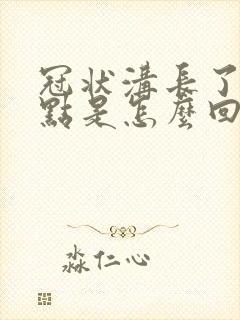 冠状溝長了
點是怎麼回
淼仁心